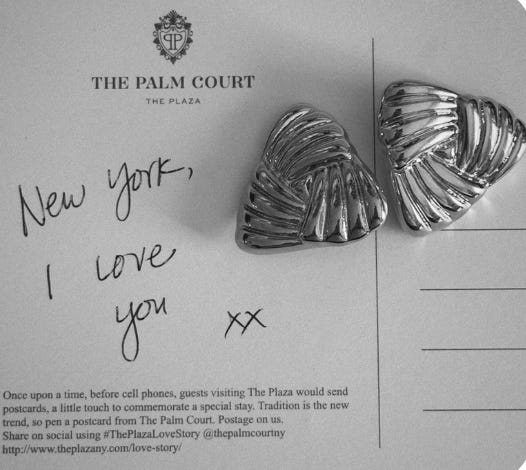 THE PALM COURT
THE PLAZA
New York,
I Love
you xx
Once upon a time, before cell phones, guests visiting The Plaza would send
postcards, a little touch to commemorate a special stay. Tradition is the new
trend, so pen a postcard from The Palm Court. Postage on us.
Share on social using #ThePlazaLoveStory @thepalmcourtny
http://www.theplazany.com/love-story/